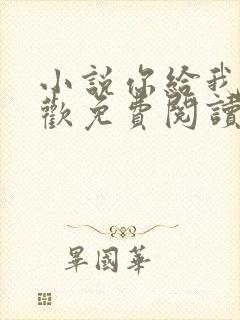 小説你給我
歡免費閱讀
畢國華